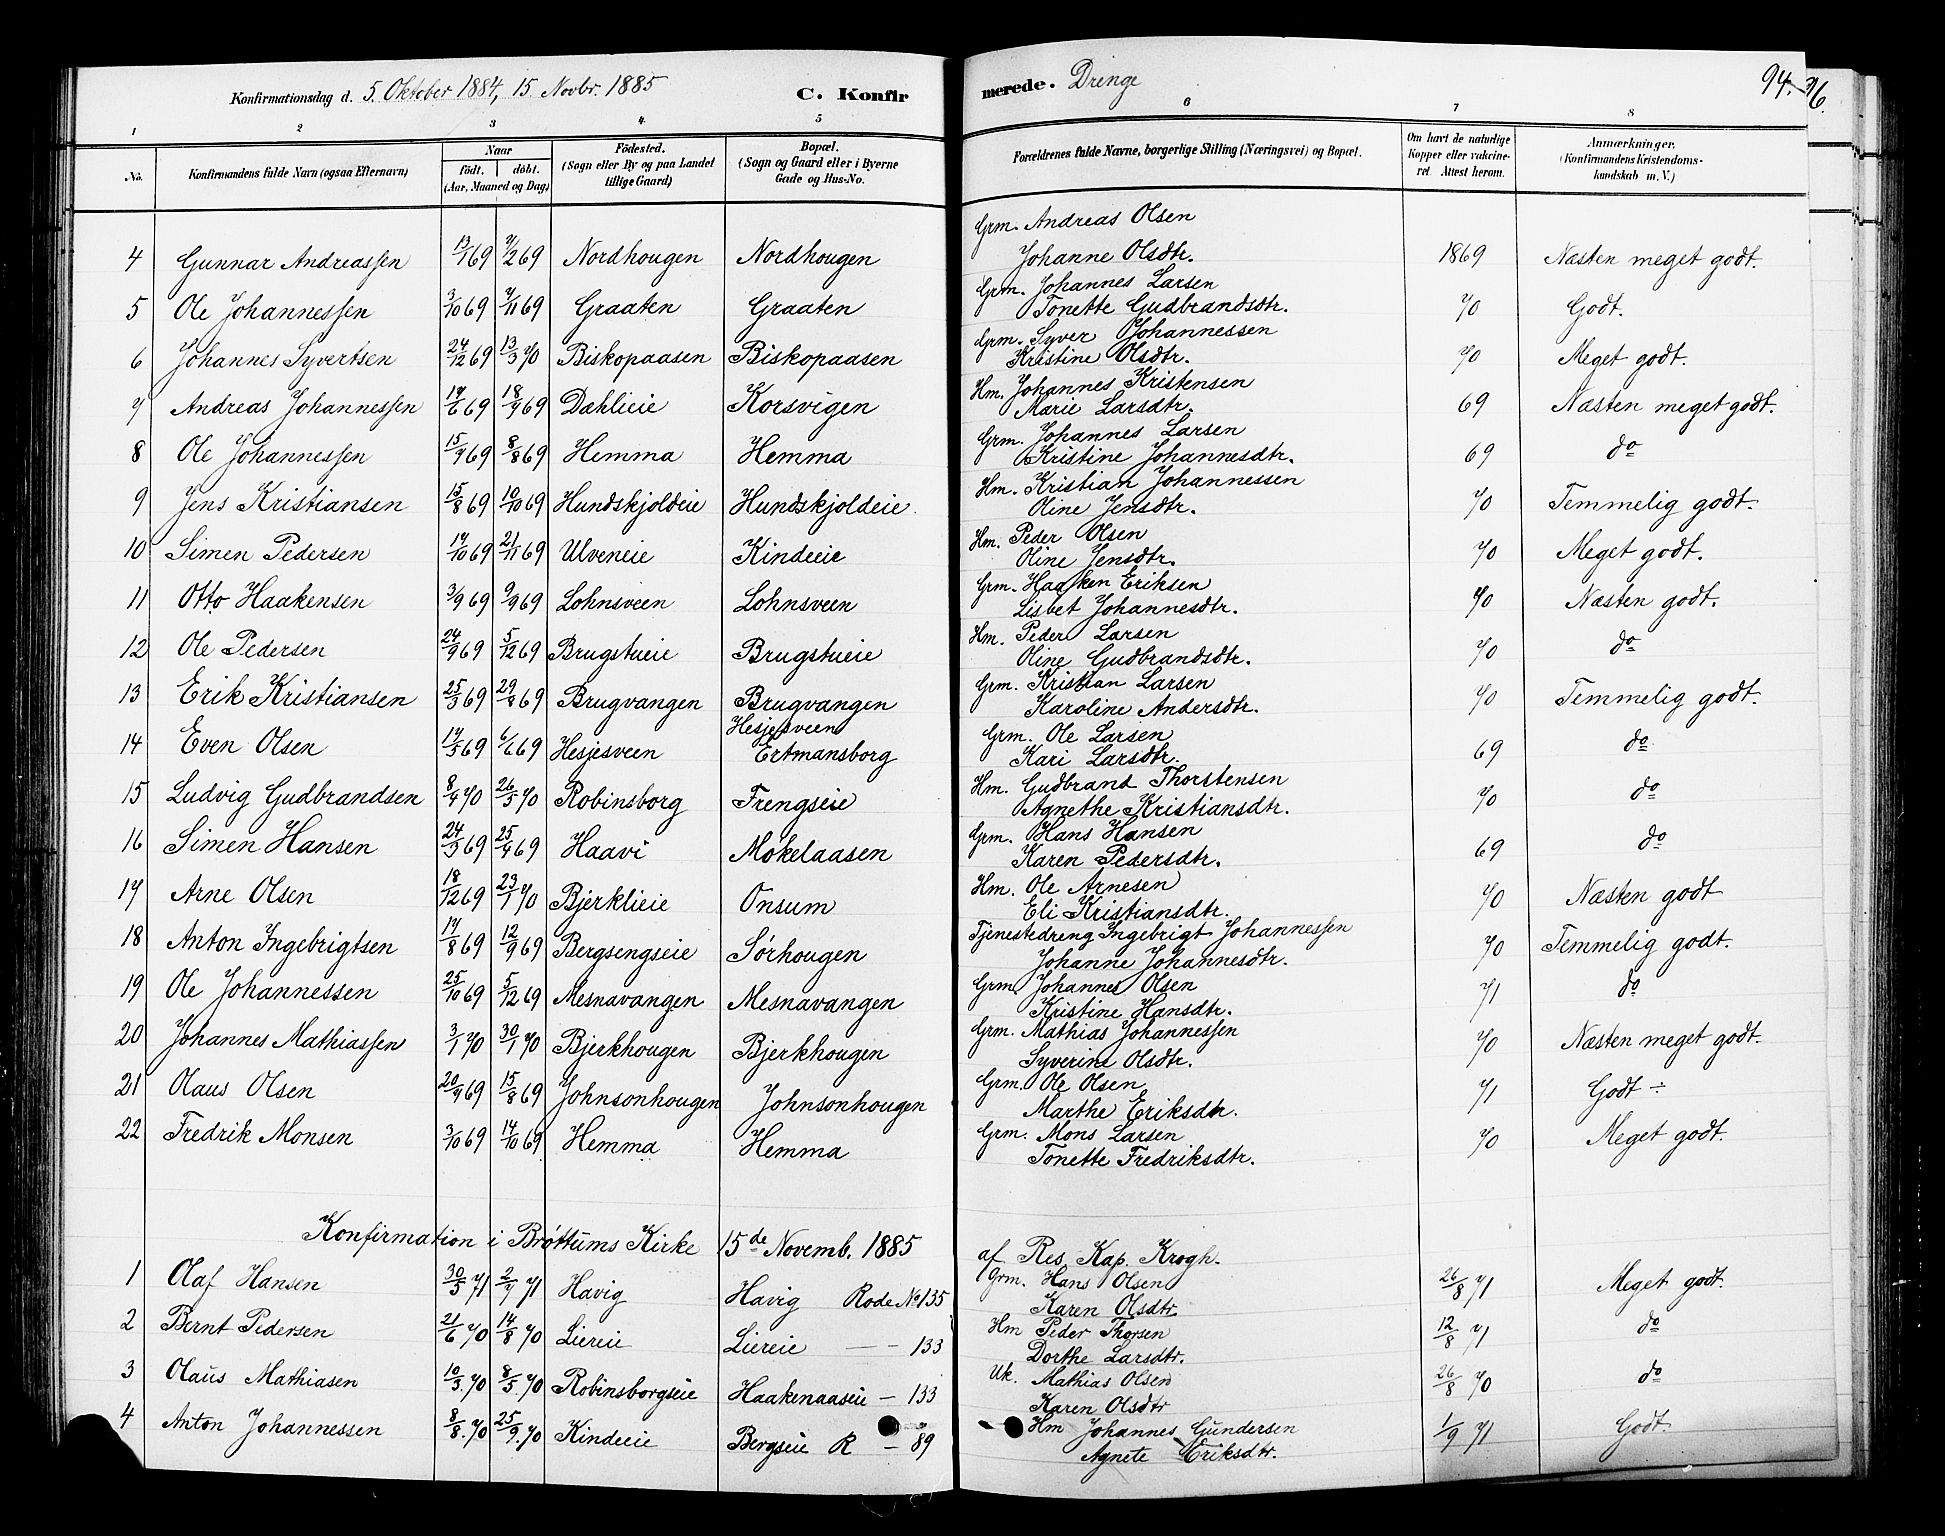 Konfirmationsdag d. 5. Oktober 1884, 15 Novbr. 1885 C. Konfirmerede. Drenge 94.
1 2 3 4. 5 6 7 8
No. Konfirmandens fulde Navn (ogsaa Efternavn) Naar født. døbt. (Aar, Maaned og Dag) Fødested. (Sogn eller By og paa Landet tillige Gaard) Bopæl. (Sogn og Gaard eller i Byerne Gade og Hus-No. Forældrenes fulde Navne, borgerlige Stilling (Næringsvei) og Bopæl. Om havt de naturlige Kopper eller vakcineret Attest herom. Anmærkninger. (Konfirmandens Kristendomskundskab m. V.)
Grm. Andreas Olsen
4 Gunnar Andreassen 13/1 69 7/2 69 Nordhougen Nordhougen Johanne Olsdtr. 1869 Næsten meget godt.
Grm. Johannes Larsen
5 Ole Johannessen 3/10 69 7/11 69 Graaten Graaten Tonette Gudbrandsdtr. 70 Godt.
Grm. Syver Johannessen
6 Johannes Syvertsen 24/12 69 13/3 70 Biskopaasen Biskopaasen Kristine Olsdtr. 70 Meget godt.
Hm. Johannes Kristensen
7 Andreas Johannessen 17/6 69 18/7 69 Dahlieie Korsvigen Marie Larsdtr. 69 Næsten meget godt.
Grm. Johannes Larsen
8 Ole Johannessen 15/7 69 8/8 69 Hemma Hemma Kristine Johannesdtr. 69 do
Hm. Kristian Johannessen
9 Jens Kristiansen 15/8 69 10/10 69 Hundskjoldeie Hundskjoldeie. Oline Jensdtr. 70 Temmelig godt.
Hm. Peder Olsen
10 Simen Pedersen 17/10 69 21/11 69 Ulveneie Kindeeie Oline Jensdtr. 70 Meget godt.
Grm. Haaken Eriksen
11 Otto Haakensen 3/9 69 9/9 69 Lohnsveen Lohnsveen Lisbet Johannesdtr. 70 Næsten godt.
Hm. Peder Larsen
12 Ole Pedersen 24/9 69 5/12 69 Brugstueie Brugstueie Oline Gudbrandsdtr. 70 do
Grm. Kristian Larsen
13 Erik Kristiansen 25/3 69 29/8 69 Brugvangen Brugvangen Karoline Andersdtr. 70 Temmelig godt.
Hesjesveen Grm. Ole Larsen
14 Even Olsen 17/5 69 6/6 69 Hesjesveen Ertmansborg Kari Larsdtr. 69 do
Hm. Gudbrand Thorstensen
15 Ludvig Gudbrandsen 8/4 70 26/5 70 Robinsborg Frengseie Agnethe Kristiansdtr. 70 do
Grm. Hans Hansen
16 Simen Hansen 24/3 69 25/4 69 Haavi Mokelaasen Karen Pedersdtr. 69 do
Hm. Ole Arnesen
17 Arne Olsen 18/12 69 23/1 70 Bjerklieie Onsum Eli Kristiansdtr. 70 Næsten godt
Tjenestedreng Ingebrigt Johannessen
18 Anton Ingebrigtsen 17/8 69 12/9 69 Bergsengseie Sørhougen Johanne Johannesdtr. 70 Temmelig godt.
Grm. Johannes Olsen
19 Ole Johannessen 25/10 69 5/12 69 Mesnavangen Mesnavangen Kristine Hansdtr. 71 do
Grm. Mathias Johannessen
20 Johannes Mathiassen 3/1 70 30/1 70 Bjerkhougen Bjerkhougen Syverine Olsdtr. 70 Næsten meget godt.
Grm. Ole Olsen
21 Olaus Olsen 20/9 69 15/8 69 Johnsonhougen Johnsonhougen Marthe Eriksdtr. 71 Godt ÷
Grm. Mons Larsen
22 Fredrik Monsen 3/10 69 14/10 69 Hemma Hemma Tonette Fredriksdtr. 70 Meget godt.
Konfirmation i Brøttums Kirke 15de Novemb. 1885 af Res. Kap. Krogh.
1 Olaf Hansen 30/5 71 2/7 71 Havig Havig Rode No 135 Grm. Hans Olsen 26/8 71 Meget godt.
Karen Olsdtr
2 Bernt Pedersen 21/6 70 14/8 70 Liereie Liereie — - 133 Hm Peder Thorsen 12/8 71 do
Dorthe Larsdtr.
3 Olaus Mathiasen 10/3. 70 8/5. 70 Robinsborgseie Haakenaaseie - 133 Uk. Mathias Olsen 26/8 70 do
Karen Olsdtr
4 Anton Johannessen 8/8. 70 25/9. 70 Kindeeie Bergseie R - 89 Hm Johannes Gundersen 1/9 71 Godt.
Agnete Eriksdtr.